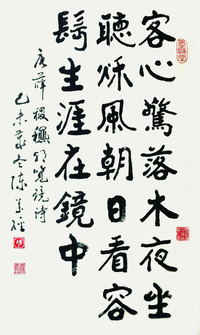 客心驚落木夜坐
聽秋風朝日看容
鬢生涯在鏡中
唐薛稷秋朝覽鏡詩
己未歲冬陳